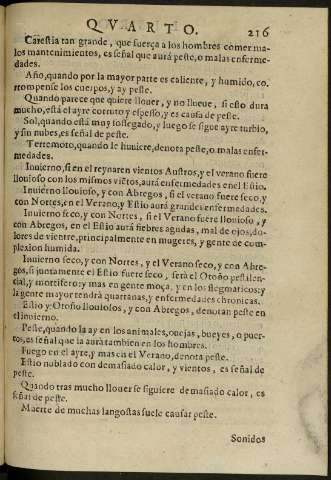 QVARTO. 216
Carestia tan grande, que fuerça a los hombres comer ma-
los mantenimientos, es señal que aurá peste, o malas enferme-
dades.
Año, quando por la mayor parte es caliente, y humido, co-
rrompense los cuerpos, y ay peste.
Quando parece que quiere llouer, y no llueue, si esto dura
mucho, está el ayre corruto y espesso, y es causa de peste.
Sol, quando está muy sossegado, y luego se sigue ayre turbio,
y sin nubes, es señal de peste.
Terremoto, quando le huuiere, denota peste, o malas enfer-
medades.
Inuierno, si en el reynaren vientos Austros, y el verano fuere
lluuioso con los mismos vientos, aurá enfermedades en el Estio.
Inuierno lluuioso, y con Abregos, si el verano fuere seco, y
con Nortes, en el Verano, y Estio aurá grandes enfermedades.
Inuierno seco, y con Nortes, si el Verano fuere lluuioso, y
con Abregos, en el Estio aurá fiebres agudas, mal de ojos, do-
lores de vientre, principalmente en mugeres, y gente de com-
plexion humida.
Inuierno seco, y con Nortes, y el Verano seco, y con Abre-
gos, si juntamente el Estio fuere seco, será el Otoño pestilen-
cial, y mortifero: y mas en gente moça, y en los flegmaticos: y
la gente mayor tendrá quartanas, y enfermedades chronicas.
Estio y Otoño lluuiosos, y con Abregos, denotan peste en
el Inuierno.
Peste, quando la ay en los animales, ouejas, bueyes, o puer-
cos, es señal que la aurá tambien en los hombres.
Fuego en el ayre, y mas en el Verano, denota peste.
Estio nublado con demasiado calor, y vientos, es señal de
peste.
Quando tras mucho llouer se siguiere demasiado calor, es
señal de peste.
Muerte de muchas langostas suele causar peste.
Sonidos